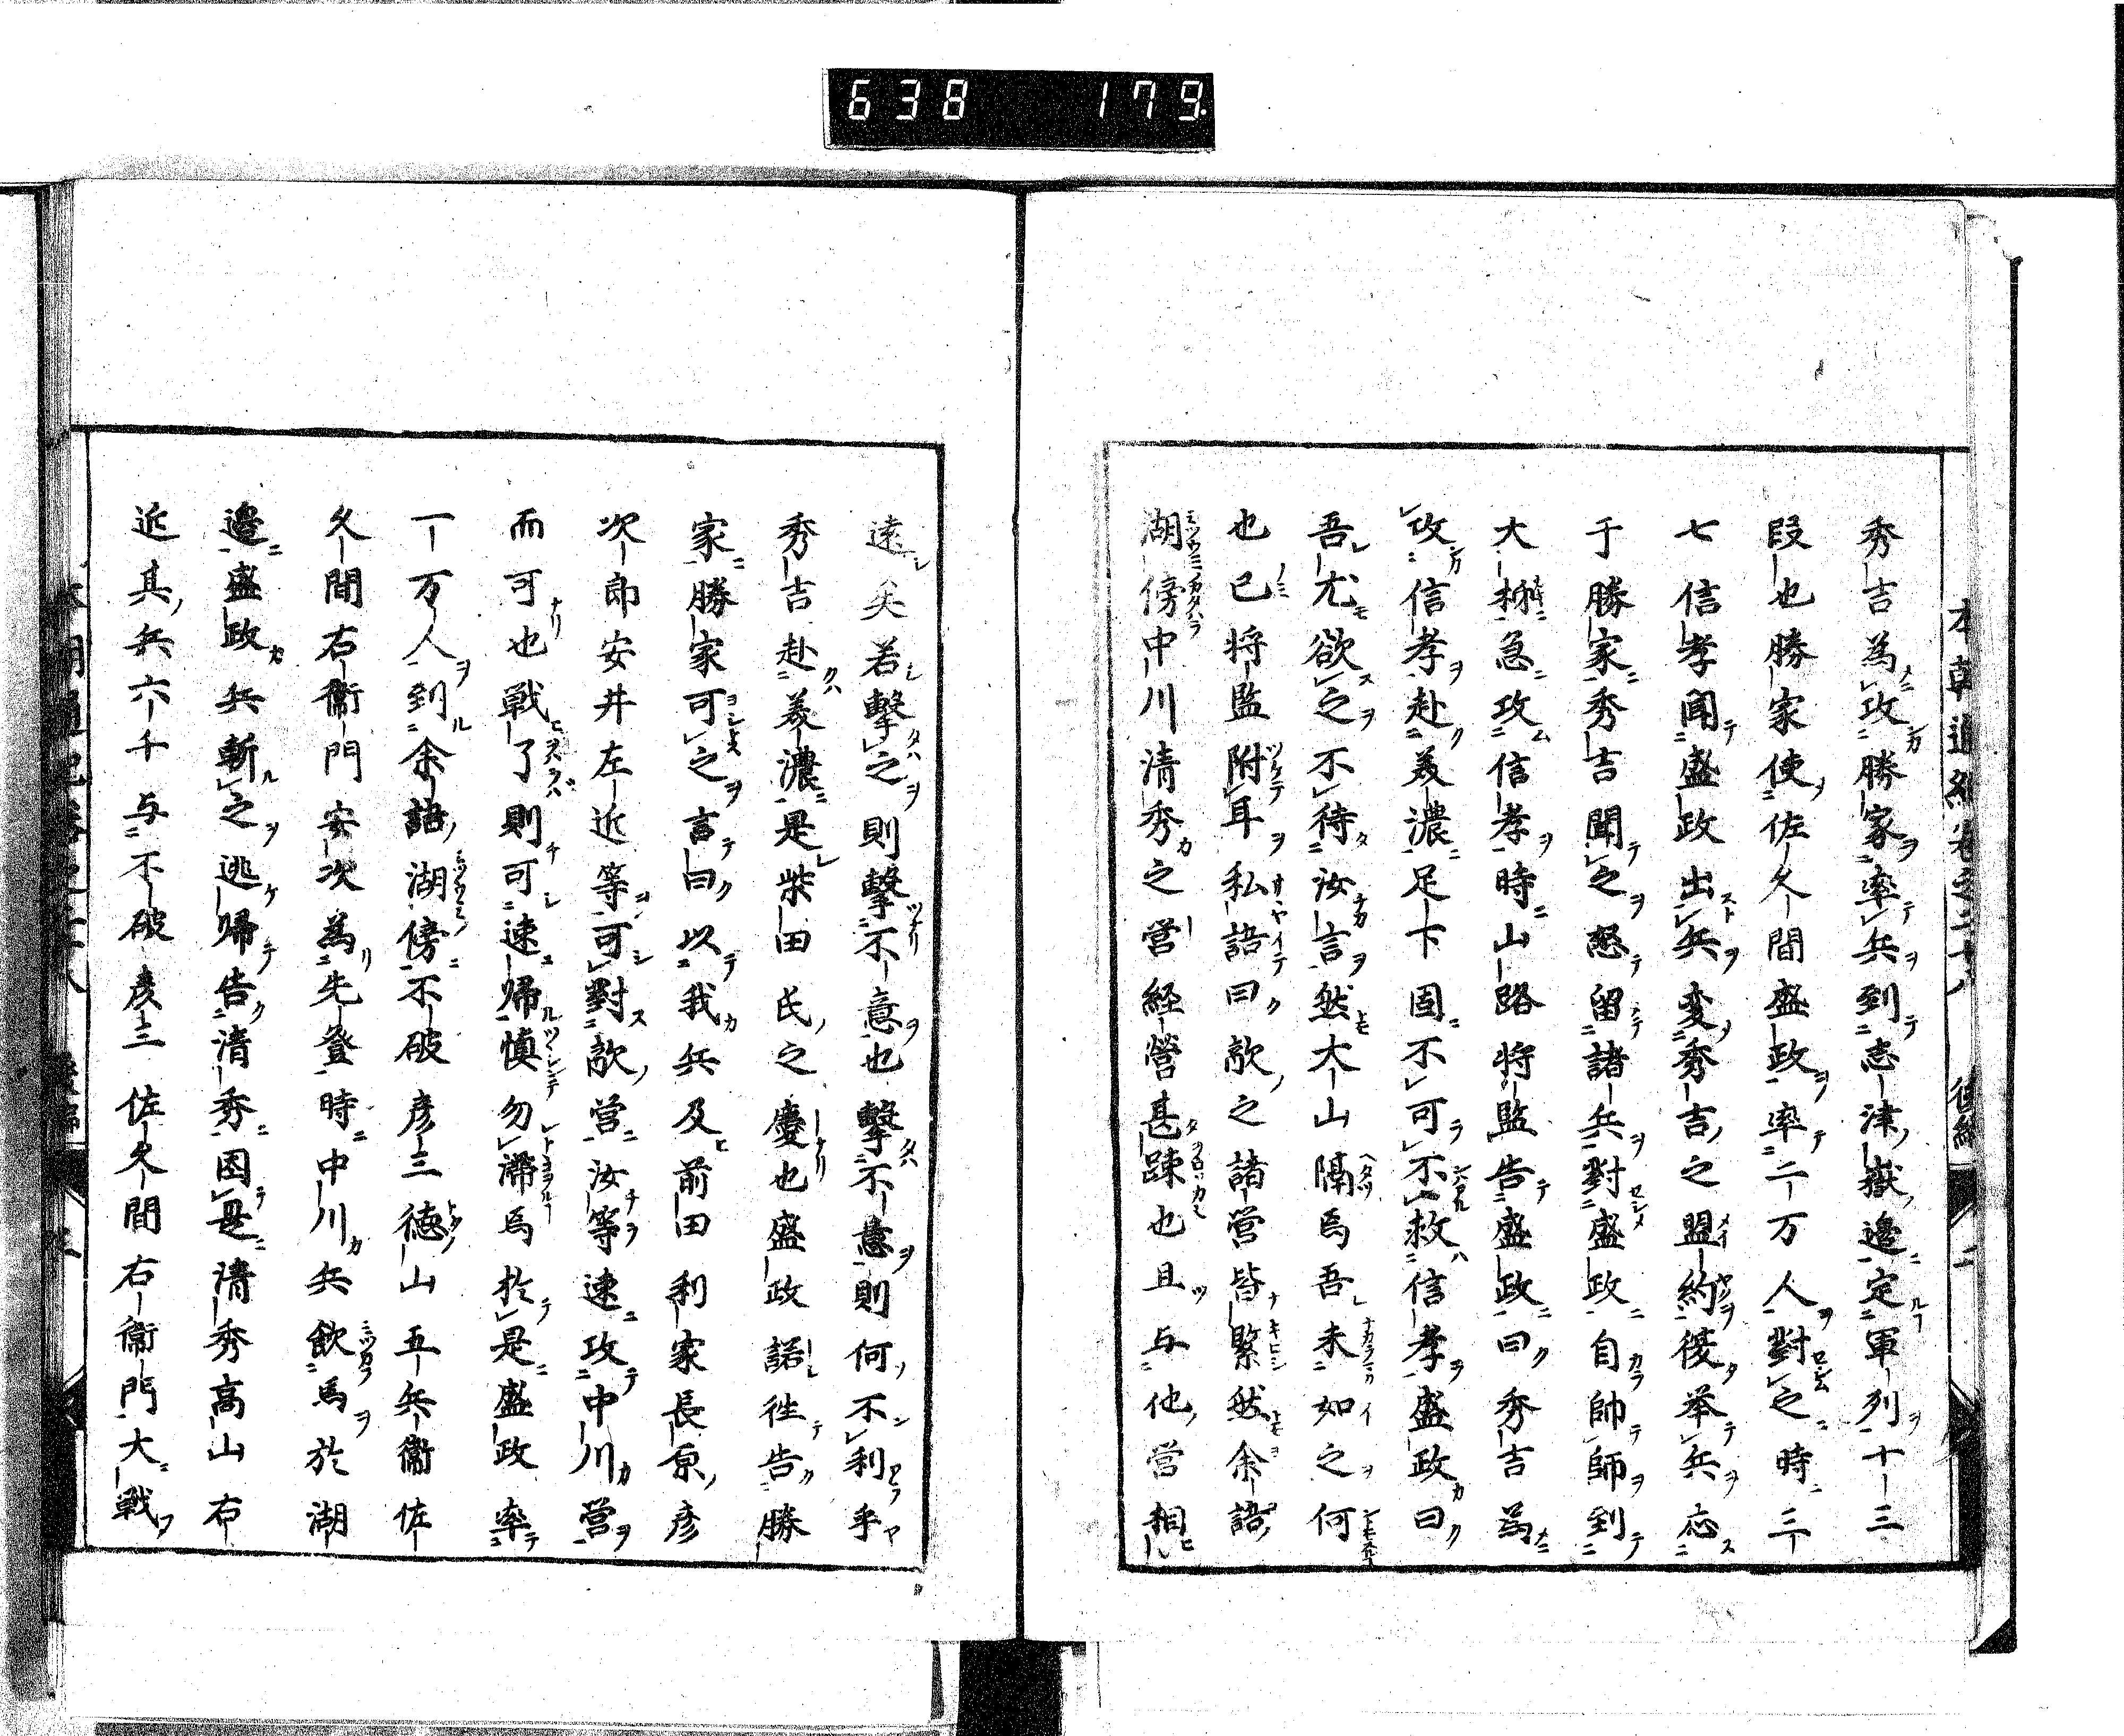 638 179.
秀吉為攻勝家率兵到志津嶽邉定軍列十三
段也勝家使佐久間盛政率二万人對之時三
七信孝聞盛政出兵変秀吉之盟約後挙兵応
于勝家秀吉聞之怒留諸兵對盛政自帥師到
大柳急攻信孝時山路将監告盛政曰秀吉為
攻信孝赴美濃足下固不可不救信孝盛政曰
吾尤欲之不待汝言然大山隔焉吾未如之何
也已将監附耳私語曰敵之諸営皆緊然余語
湖傍中川清秀之営経営甚踈也且与他営相
遠矣若擊之則擊不意也擊不意則何不利乎
秀吉赴美濃是柴田氏之慶也盛政諾徃告勝
家勝家可之言曰以我兵及前田利家長原彦
次郎安井左近等可對敵営汝等速攻中川営
而可也戦了則可速帰慎勿滞焉於是盛政率
一万人到余語湖傍不破彦三徳山五兵衞佐
久間右衞門安次為先登時中川兵飲馬於湖
邉盛政兵斬之逃帰告清秀因毋清秀高山右
近其兵六千与不破彦三佐久間右衞門大戦